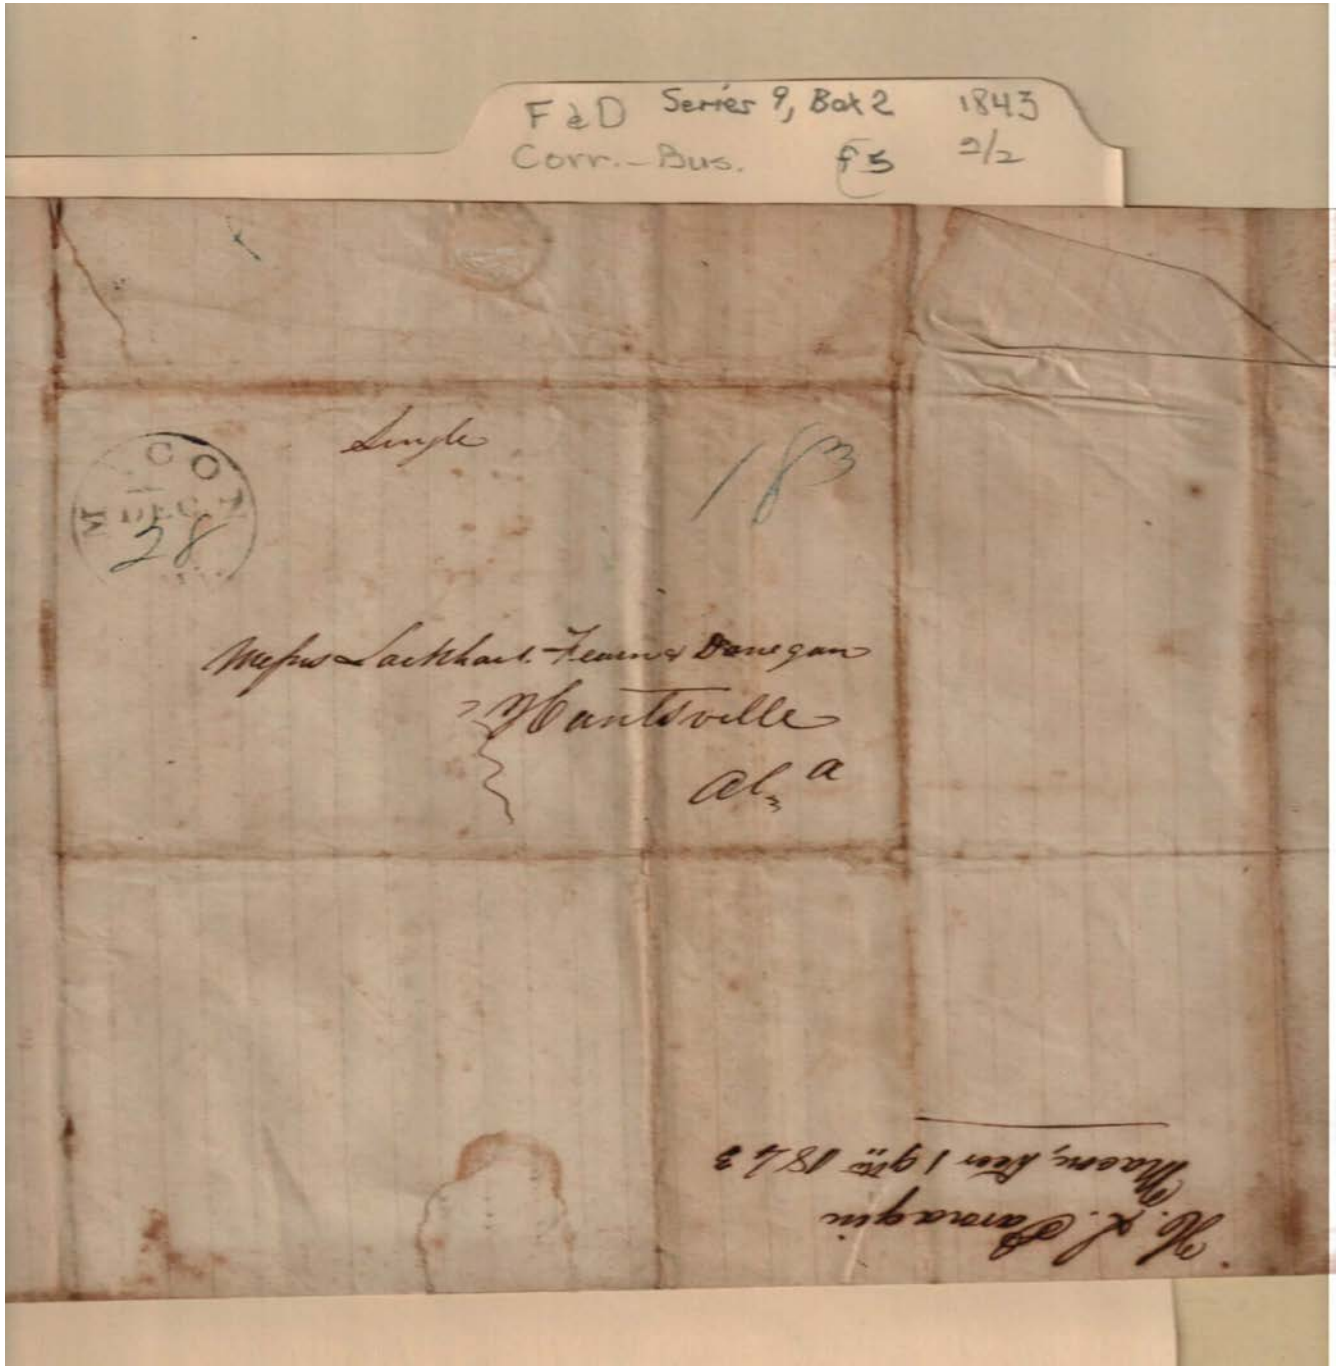 F & D Series 9, Box 2 1843
Corr.-Bus. f5 2/2
Single
M CO
DEC
28
18 3
Messrs Lockhart. Fearn & Donegan
Huntsville
Ala
H. L.
Macon, 1843